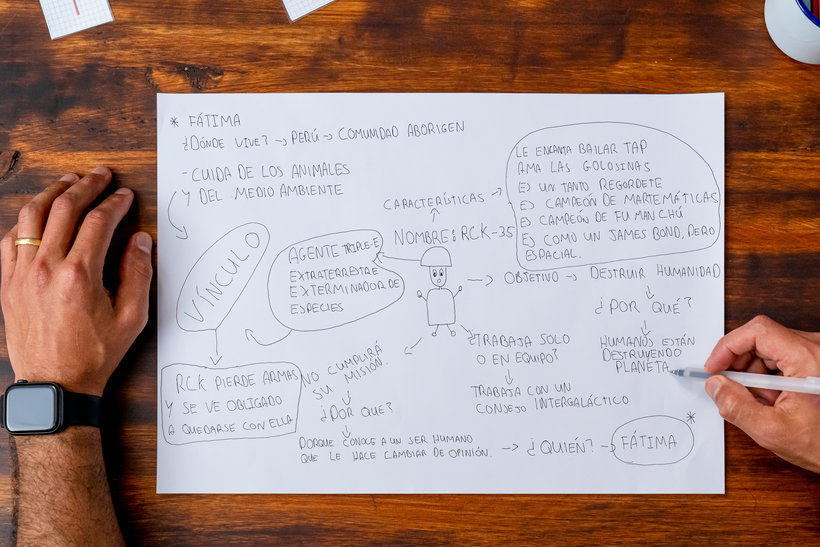 * FÁTIMA
¿DÓNDE VIVE? → PERÚ → COMUNIDAD ABORIGEN
- CUIDA DE LOS ANIMALES
Y DEL MEDIO AMBIENTE
VÍNCULO
RCK PIERDE ARMAS
Y SE VE OBLIGADO
A QUEDARSE CON ELLA
AGENTE TRIPLE-E
EXTRATERRESTRE
EXTERMINADOR DE
ESPECIES
CARACTERÍSTICAS
NOMBRE: RCK-35
LE ENCANTA BAILAR TAP
AMA LAS GOLOSINAS
ES UN TANTO REGORDETE
ES CAMPEÓN DE MARTEMÁTICAS
ES CAMPEÓN DE FU MAN CHÚ
ES COMO UN JAMES BOND, PERO
ESPACIAL.
→ OBJETIVO → DESTRUIR HUMANIDAD
¿POR QUÉ?
HUMANOS ESTÁN
DESTRUYENDO
PLANETA
¿TRABAJA SOLO
O EN EQUIPO?
TRABAJA CON UN
CONSEJO INTERGALÁCTICO
NO CUMPLIRÁ
SU MISIÓN.
¿POR QUE?
PORQUE CONOCE A UN SER HUMANO
QUE LE HACE CAMBIAR DE OPINIÓN. → ¿QUIÉN? → FÁTIMA *